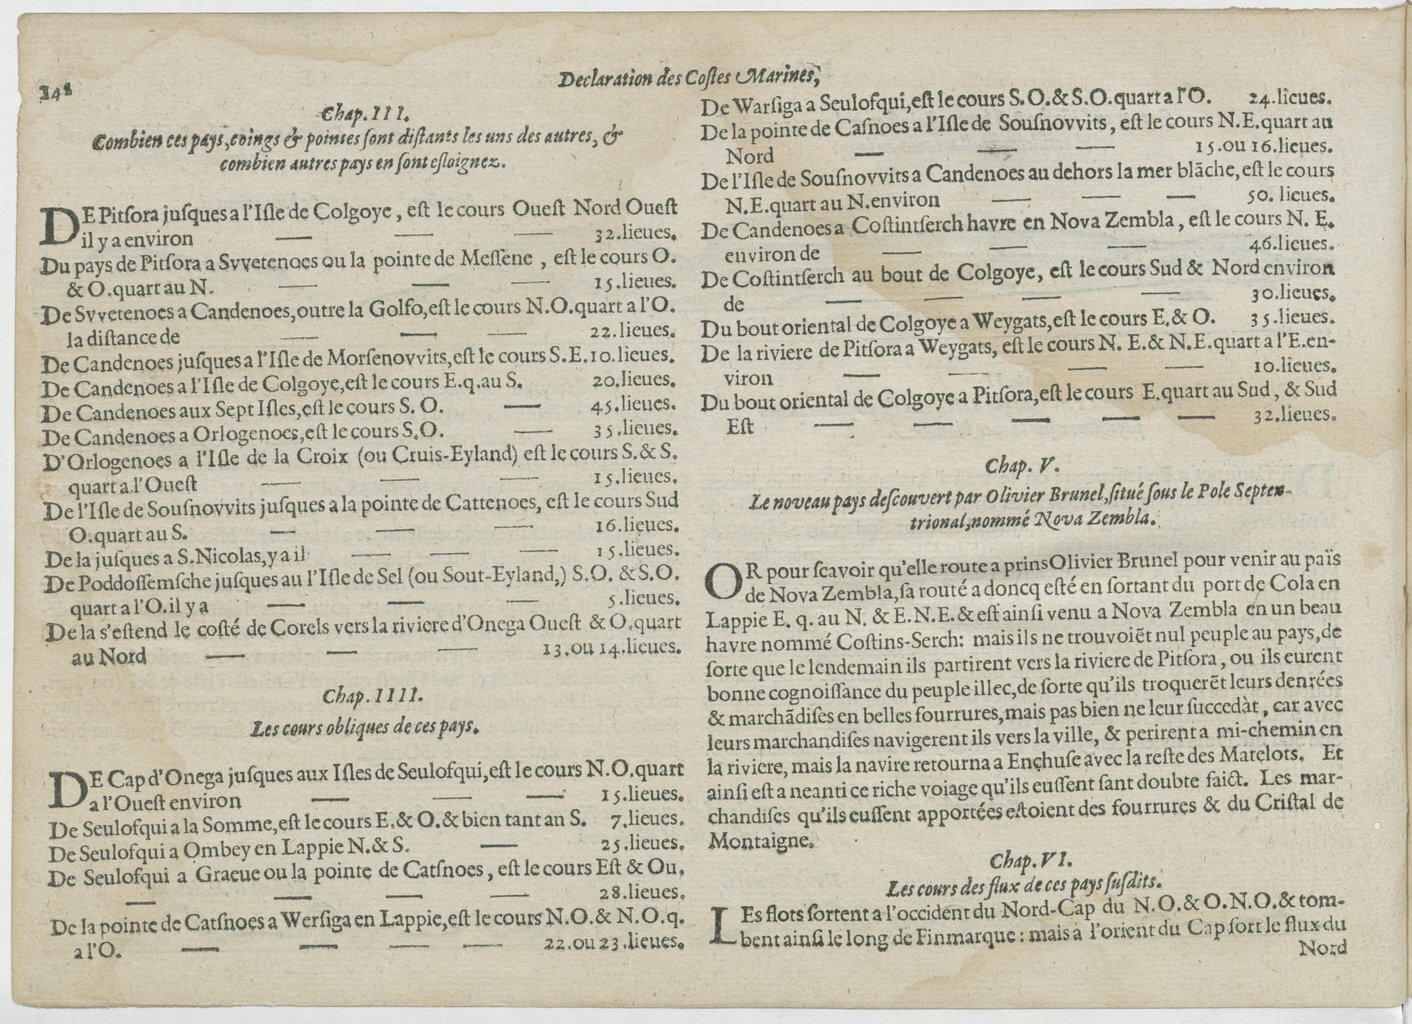 348
Declaration des Costes Marines,
Chap. III.
Combien ces pays, coings & pointes sont distants les uns des autres, &
combien autres pays en sont esloignez.
DE Pitsora jusques a l'Isle de Colgoye, est le cours Ouest Nord Ouest
il y a environ — — — 32. lieues.
Du pays de Pitsora a Svvetenoes ou la pointe de Messene, est le cours O.
& O. quart au N. — — — 15. lieues.
De Svvetenoes a Candenoes, outre la Golfo, est le cours N.O. quart a l'O.
la distance de — — — 22. lieues.
De Candenoes jusques a l'Isle de Morsenovvits, est le cours S.E. 10. lieues.
De Candenoes a l'Isle de Colgoye, est le cours E.q. au S. 20. lieues.
De Candenoes aux Sept Isles, est le cours S. O. — 45. lieues.
De Candenoes a Orlogenoes, est le cours S.O. — 35. lieues.
D'Orlogenoes a l'Isle de la Croix (ou Cruis-Eyland) est le cours S.& S.
quart a l'Ouest — — — 15. lieues.
De l'Isle de Sousnovvits jusques a la pointe de Cattenoes, est le cours Sud
O. quart au S. — — — 16. lieues.
De la jusques a S. Nicolas, y a il — — — 15. lieues.
De Poddossemsche jusques au l'Isle de Sel (ou Sout-Eyland,) S.O. & S.O.
quart a l'O. il y a — — — 5. lieues.
De la s'estend le costé de Corels vers la riviere d'Onega Ouest & O. quart
au Nord — — — 13. ou 14. lieues.
Chap. IIII.
Les cours obliques de ces pays.
DE Cap d'Onega jusques aux Isles de Seulofqui, est le cours N.O. quart
a l'Ouest environ — — — 15. lieues.
De Seulofqui a la Somme, est le cours E.& O.& bien tant an S. 7. lieues.
De Seulofqui a Ombey en Lappie N.& S. — 25. lieues.
De Seulofqui a Graeue ou la pointe de Catsnoes, est le cours Est & Ou.
— — — — 28. lieues.
De la pointe de Catsnoes a Wersiga en Lappie, est le cours N.O.& N.O.q.
a l'O. — — — — 22. ou 23. lieues.
De Warsiga a Seulofqui, est le cours S. O.& S.O. quart a l'O. 24. lieues.
De la pointe de Casnoes a l'Isle de Sousnovvits, est le cours N.E. quart au
Nord — — — 15. ou 16. lieues.
De l'Isle de Sousnovvits a Candenoes au dehors la mer blãche, est le cours
N.E. quart au N. environ — — — 50. lieues.
De Candenoes a Costintserch havre en Nova Zembla, est le cours N. E.
environ de — — — 46. lieues.
De Costintserch au bout de Colgoye, est le cours Sud & Nord environ
de — — — — 30. lieues.
Du bout oriental de Colgoye a Weygats, est le cours E.& O. 35. lieues.
De la riviere de Pitsora a Weygats, est le cours N. E.& N.E. quart a l'E. en-
viron — — — — 10. lieues.
Du bout oriental de Colgoye a Pitsora, est le cours E. quart au Sud, & Sud
Est — — — — — 32. lieues.
Chap. V.
Le noveau pays descouvert par Olivier Brunel, situé sous le Pole Septen-
trional, nommé Nova Zembla.
OR pour scavoir qu'elle route a prins Olivier Brunel pour venir au païs
de Nova Zembla, sa routé a doncq esté en sortant du port de Cola en
Lappie E. q. au N. & E.N.E.& est ainsi venu a Nova Zembla en un beau
havre nommé Costins-Serch: mais ils ne trouvoiẽt nul peuple au pays, de
sorte que le lendemain ils partirent vers la riviere de Pitsora, ou ils eurent
bonne cognoissance du peuple illec, de sorte qu'ils troquerẽt leurs denrées
& marchãdises en belles fourrures, mais pas bien ne leur succedàt, car avec
leurs marchandises navigerent ils vers la ville, & perirent a mi-chemin en
la riviere, mais la navire retourna a Enchuse avec la reste des Matelots. Et
ainsi est a neanti ce riche voiage qu'ils eussent sant doubte faict. Les mar-
chandises qu'ils eussent apportées estoient des fourrures & du Cristal de
Montaigne.
Chap. VI.
Les cours des flux de ces pays susdits.
LEs flots sortent a l'occident du Nord-Cap du N.O.& O.N.O.& tom-
bent ainsi le long de Finmarque: mais à l'orient du Cap sort le flux du
Nord